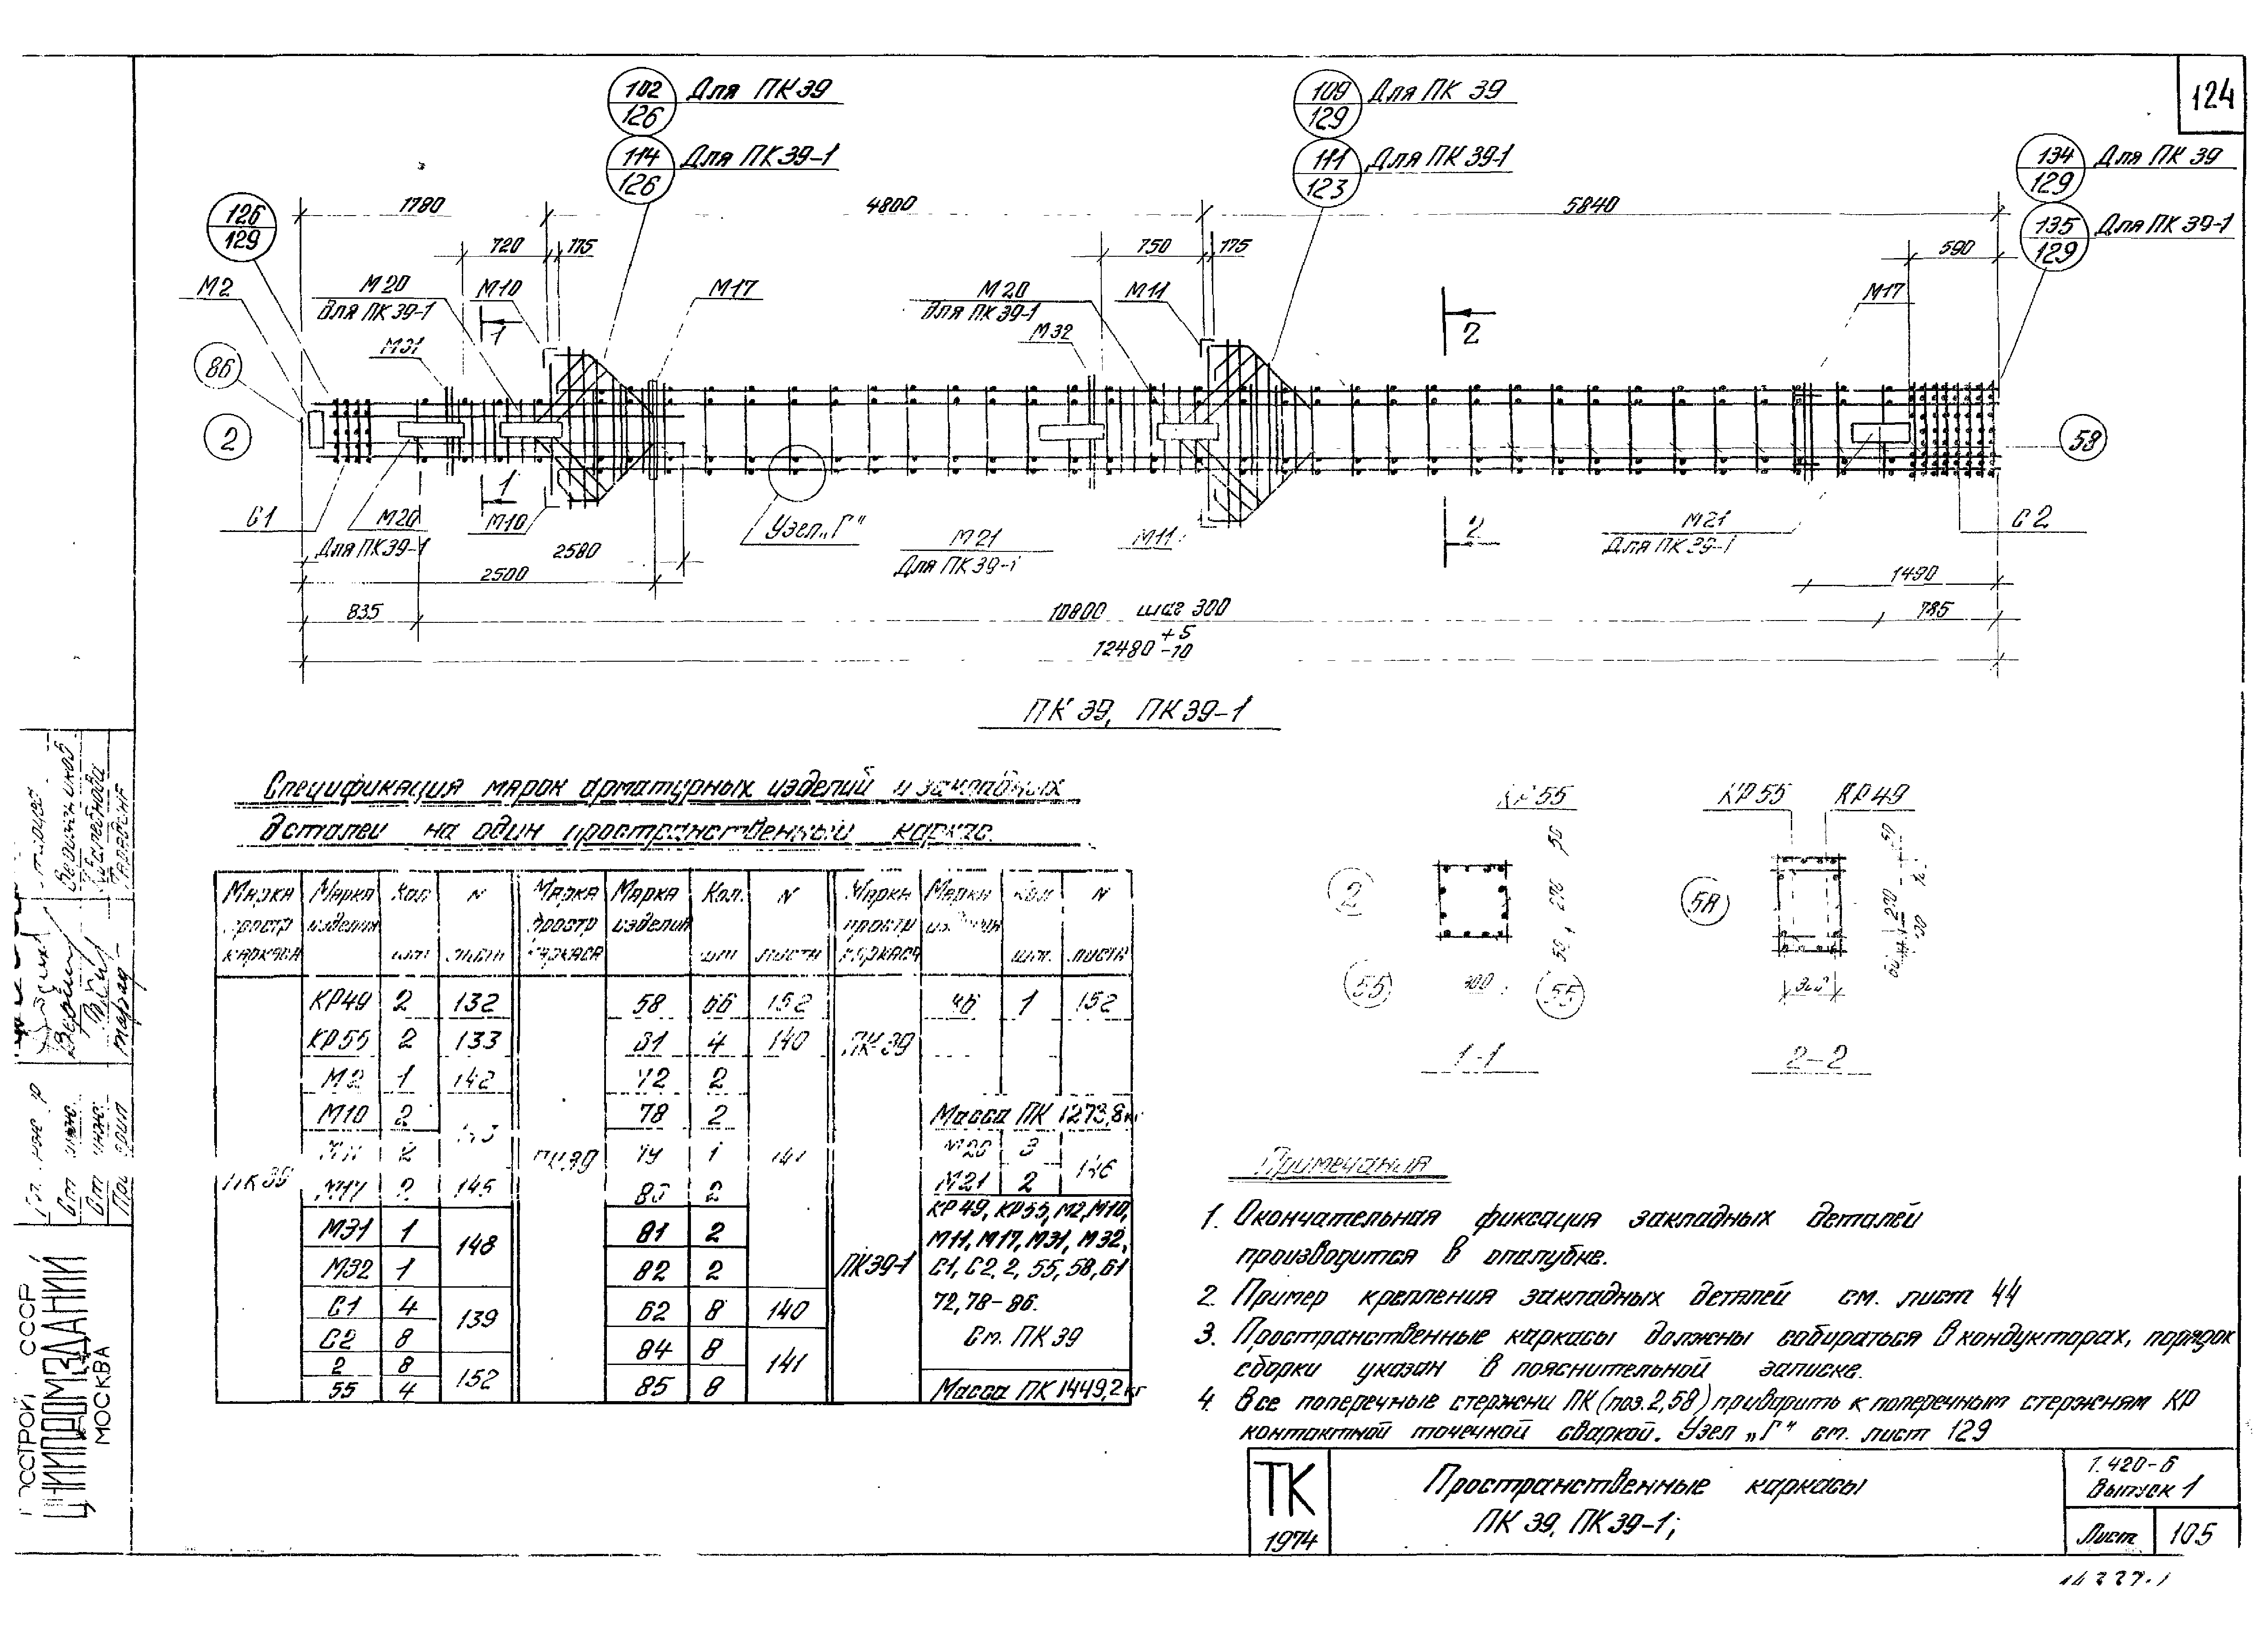 124
102 Для ПК 39
126
114 Для ПК 39-1
126
109 Для ПК 39
129
111 Для ПК 39-1
123
134 Для ПК 39
129
135 Для ПК 39-1
129
126
129
1780
4800
5840
720
175
750
175
590
М2
М20
Для ПК 39-1
М10
М17
М20
Для ПК 39-1
М11
М17
М31
М32
1
2
86
2
58
С1
М20
Для ПК 39-1
1
М10
Узел „Г"
М21
Для ПК 39-1
М11
2
М21
Для ПК 39-1
С2
2580
2500
1490
835
10800 шаг 300
785
12480 +5 -10
ПК 39, ПК 39-1
Спецификация марок арматурных изделий и закладных
деталей на один пространственный каркас.
Марка простр каркаса
Марка изделия
Кол шт
N листа
Марка простр каркаса
Марка изделия
Кол. шт
N листа
Марка простр каркаса
Марка изделия
Кол шт.
N листа
ПК 39
КР49 2 132
КР55 2 133
М2 1 142
М10 2
2
М17 2 145
М31 1 148
М32 1
С1 4 139
С2 8
2 8 152
55 4
ПК 39
58 66 152
4 140
72 2
78 2
1 141
2
81 2
82 2
62 8 140
84 8 141
85 8
ПК 39
1 152
Масса ПК 1273,8 кг
ПК 39-1
М20 3 146
М21 2
КР 49, КР 55, М2, М10,
М11, М17, М31, М32,
С1, С2, 2, 55, 58, 61
72, 78-86.
См. ПК 39
Масса ПК 1449,2 кг
КР 55
50
2
55
300
55
1-1
КР 55
КР 49
58
2-2
Примечания
1. Окончательная фиксация закладных деталей
производится в опалубке.
2. Пример крепления закладных деталей см. лист 44
3. Пространственные каркасы должны собираться в кондукторах, порядок
сборки указан в пояснительной записке.
4. Все поперечные стержни ПК (поз. 2, 58) приварить к поперечным стержням КР
контактной точечной сваркой. Узел „Г" см. лист 129
ТК
1974
Пространственные каркасы
ПК 39, ПК 39-1;
1.420-6
Выпуск 1
Лист 105
ГОССТРОЙ СССР
ЦНИИПРОМЗДАНИЙ
МОСКВА